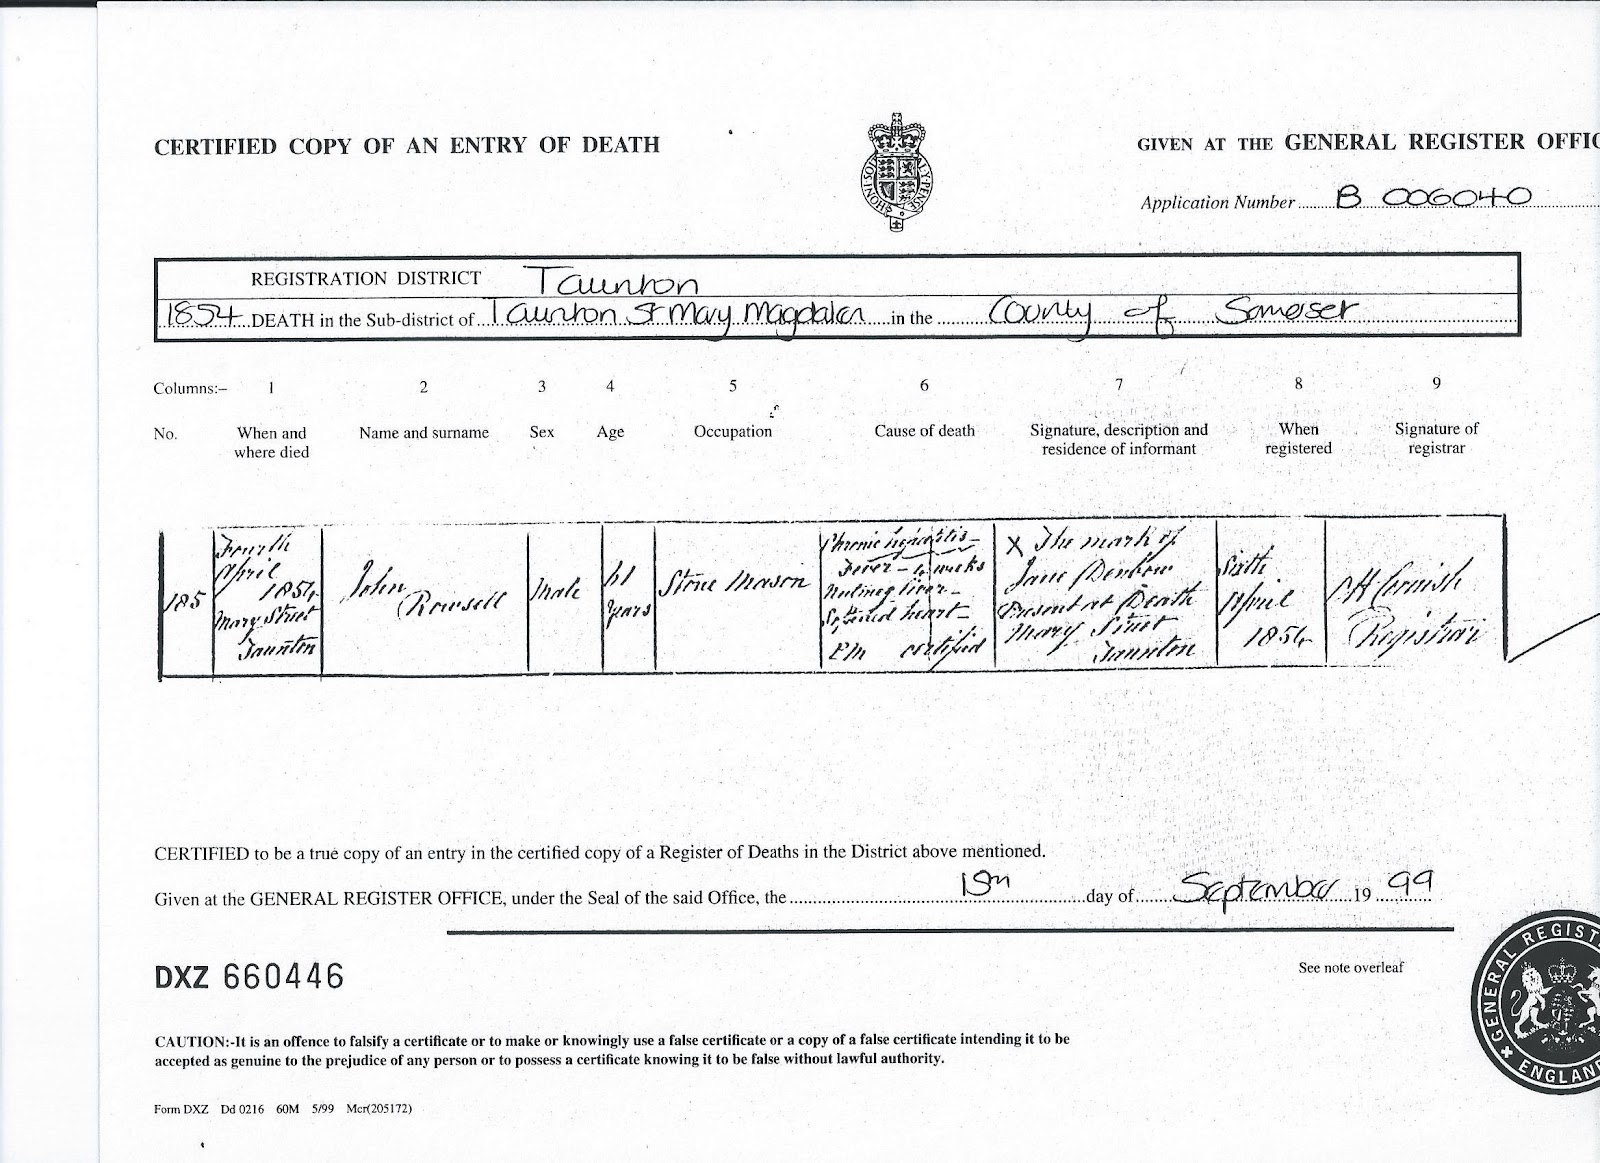 CERTIFIED COPY OF AN ENTRY OF DEATH
GIVEN AT THE GENERAL REGISTER OFFIC
HONI SOI
Y PENSE
Application Number B 006040
REGISTRATION DISTRICT Taunton
1854 DEATH in the Sub-district of Taunton St Mary Magdalen in the County of Somerset
Columns:- 1 2 3 4 5 6 7 8 9
No.
When and
where died
Name and surname
Sex
Age
Occupation
Cause of death
Signature, description and
residence of informant
When
registered
Signature of
registrar
185
Fourth
April
1854
Mary Street
Taunton
John
Rowsell
Male
61
years
Stone Mason
Chronic hepatitis
Fever - 4 weeks
Nutmeg liver -
heart -
PM certified
X The mark of
Jane Denbow
Present at Death
Mary Street
Taunton
Sixth
April
1854
Cornish
Registrar
CERTIFIED to be a true copy of an entry in the certified copy of a Register of Deaths in the District above mentioned.
Given at the GENERAL REGISTER OFFICE, under the Seal of the said Office, the 15th day of September 19 99
See note overleaf
DXZ 660446
GENERAL REGIST
ENGLAND
CAUTION:-It is an offence to falsify a certificate or to make or knowingly use a false certificate or a copy of a false certificate intending it to be
accepted as genuine to the prejudice of any person or to possess a certificate knowing it to be false without lawful authority.
Form DXZ Dd 0216 60M 5/99 Mcr(205172)